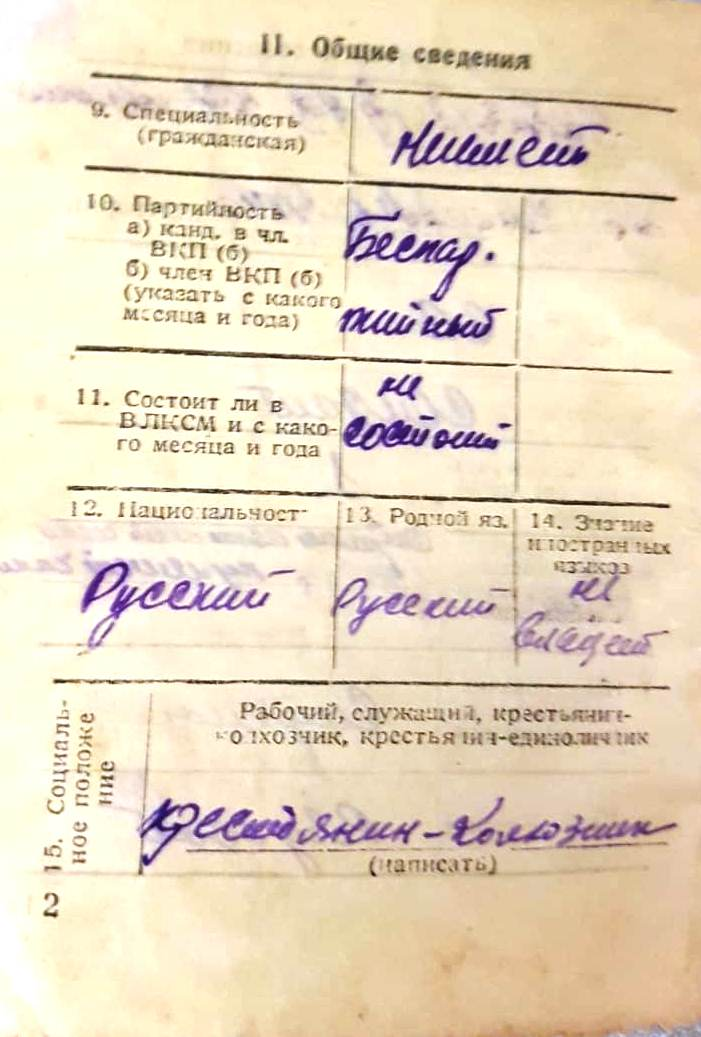 11. Общие сведения
9. Специальность
(гражданская)
не имеет
10. Партийность
а) канд. в чл.
ВКП (б)
б) член ВКП (б)
(указать с какого
месяца и года)
Беспар-
тийный
11. Состоит ли в
ВЛКСМ и с како-
го месяца и года
не
состоит
12. Национальност
13. Родной яз.
14. Знание
иностранных
языков
Русский
Русский
не
владеет
15. Социаль-
ное положе
ние
Рабочий, служащий, крестьянин-
колхозчик, крестьянин-единоличник
крестьянин-колхозник
(написать)
2